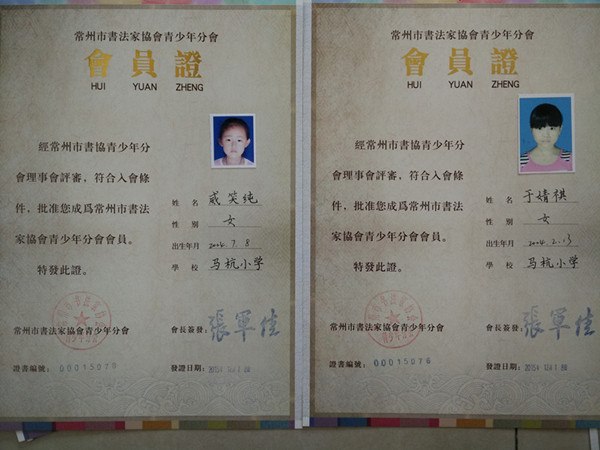 常州市書法家協會青少年分會
會員證
HUI YUAN ZHENG
經常州市書協青少年分
會理事會評審，符合入會條
件，批准您成爲常州市書法
家協會青少年分會會員。
特發此證。
姓名 戚笑纯
性別 女
出生年月 2004.7.8
學校 马杭小学
常州市書法家協會青少年分會
會長簽發：張軍佳
證書編號：00015070
發證日期：
常州市書法家協會青少年分會
會員證
HUI YUAN ZHENG
經常州市書協青少年分
會理事會評審，符合入會條
件，批准您成爲常州市書法
家協會青少年分會會員。
特發此證。
姓名 于婧祺
性別 女
出生年月 2004.2.13
學校 马杭小学
常州市書法家協會青少年分會
會長簽發：張軍佳
證書編號：00015076
發證日期：